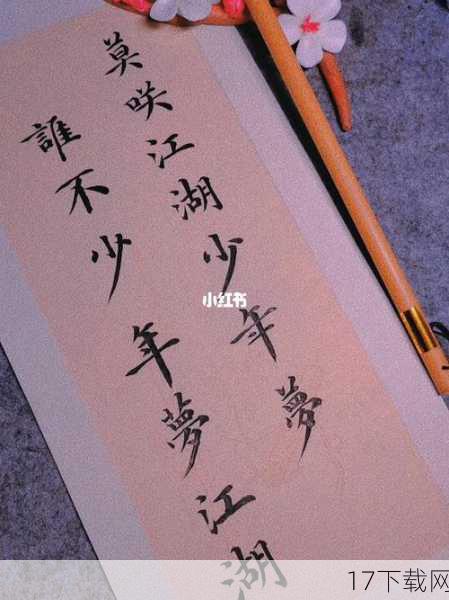 莫咲江湖少年夢
誰不少年夢江湖
小红书
17下载网